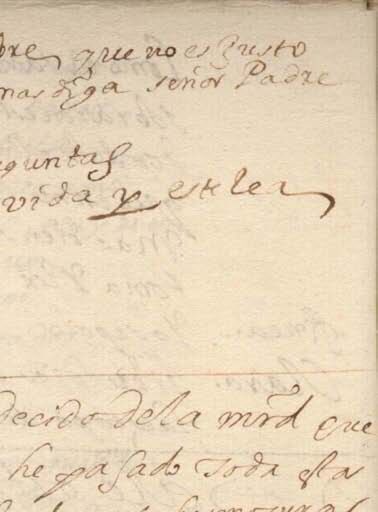 dre, que no es Justo
mas diga señor Padre
eguntas
vida y estela
decido de la mrd que
he pasado toda esta